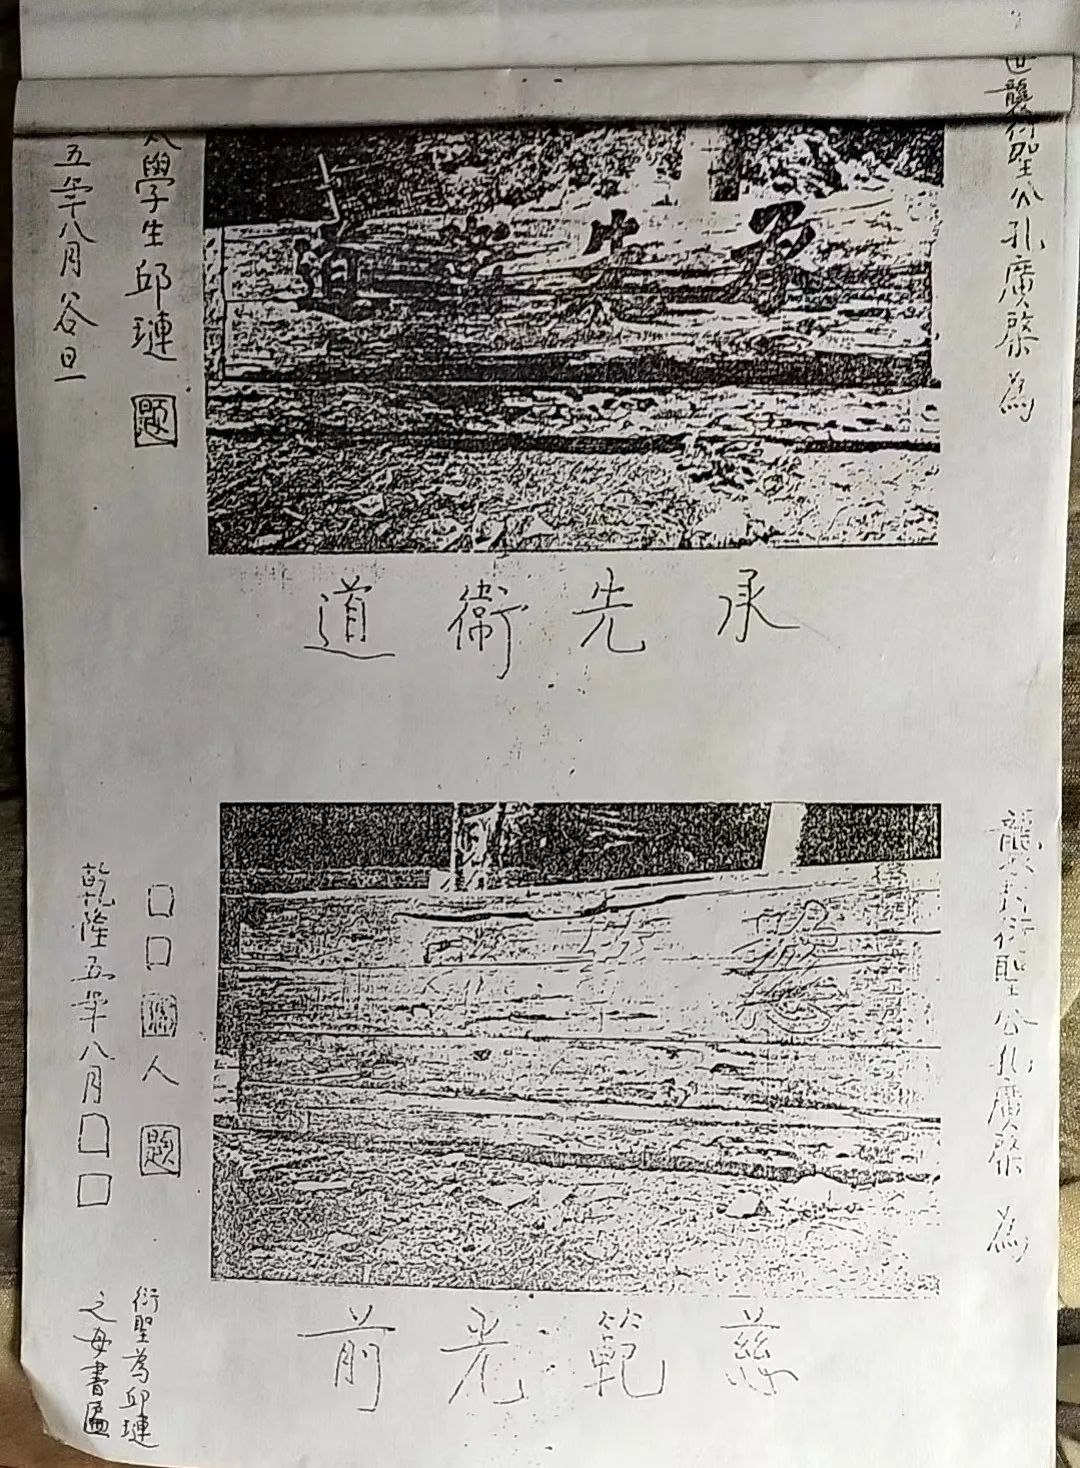 世襲衍聖公孔廣棨為
太學生邱璉題
五年八月谷旦
承先衛道
襲封衍聖公孔廣棨為
□□
人題
乾隆五年八月□□
慈範光前
衍聖為邱璉
之母書匾